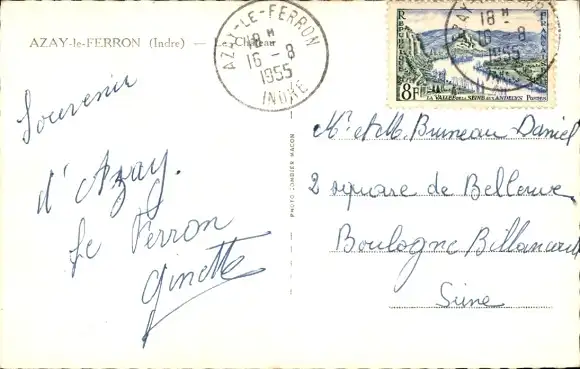 AZAY-le-FERRON (Indre) — Le Château
AZAY-LE-FERRON
18 H
16-8
1955
INDRE
REPUBLIQUE
FRANÇAISE
8F
LA VALLÉE DE LA SEINE AUX ANDELYS
Postes
AZAY
18 H
16-8
1955
Souvenir
d'Azay.
Le Ferron
Ginette
PHOTO COMBIER MACON
Mr et M. Bruneau Daniel
2 square de Bellevue
Boulogne Billancourt
Seine